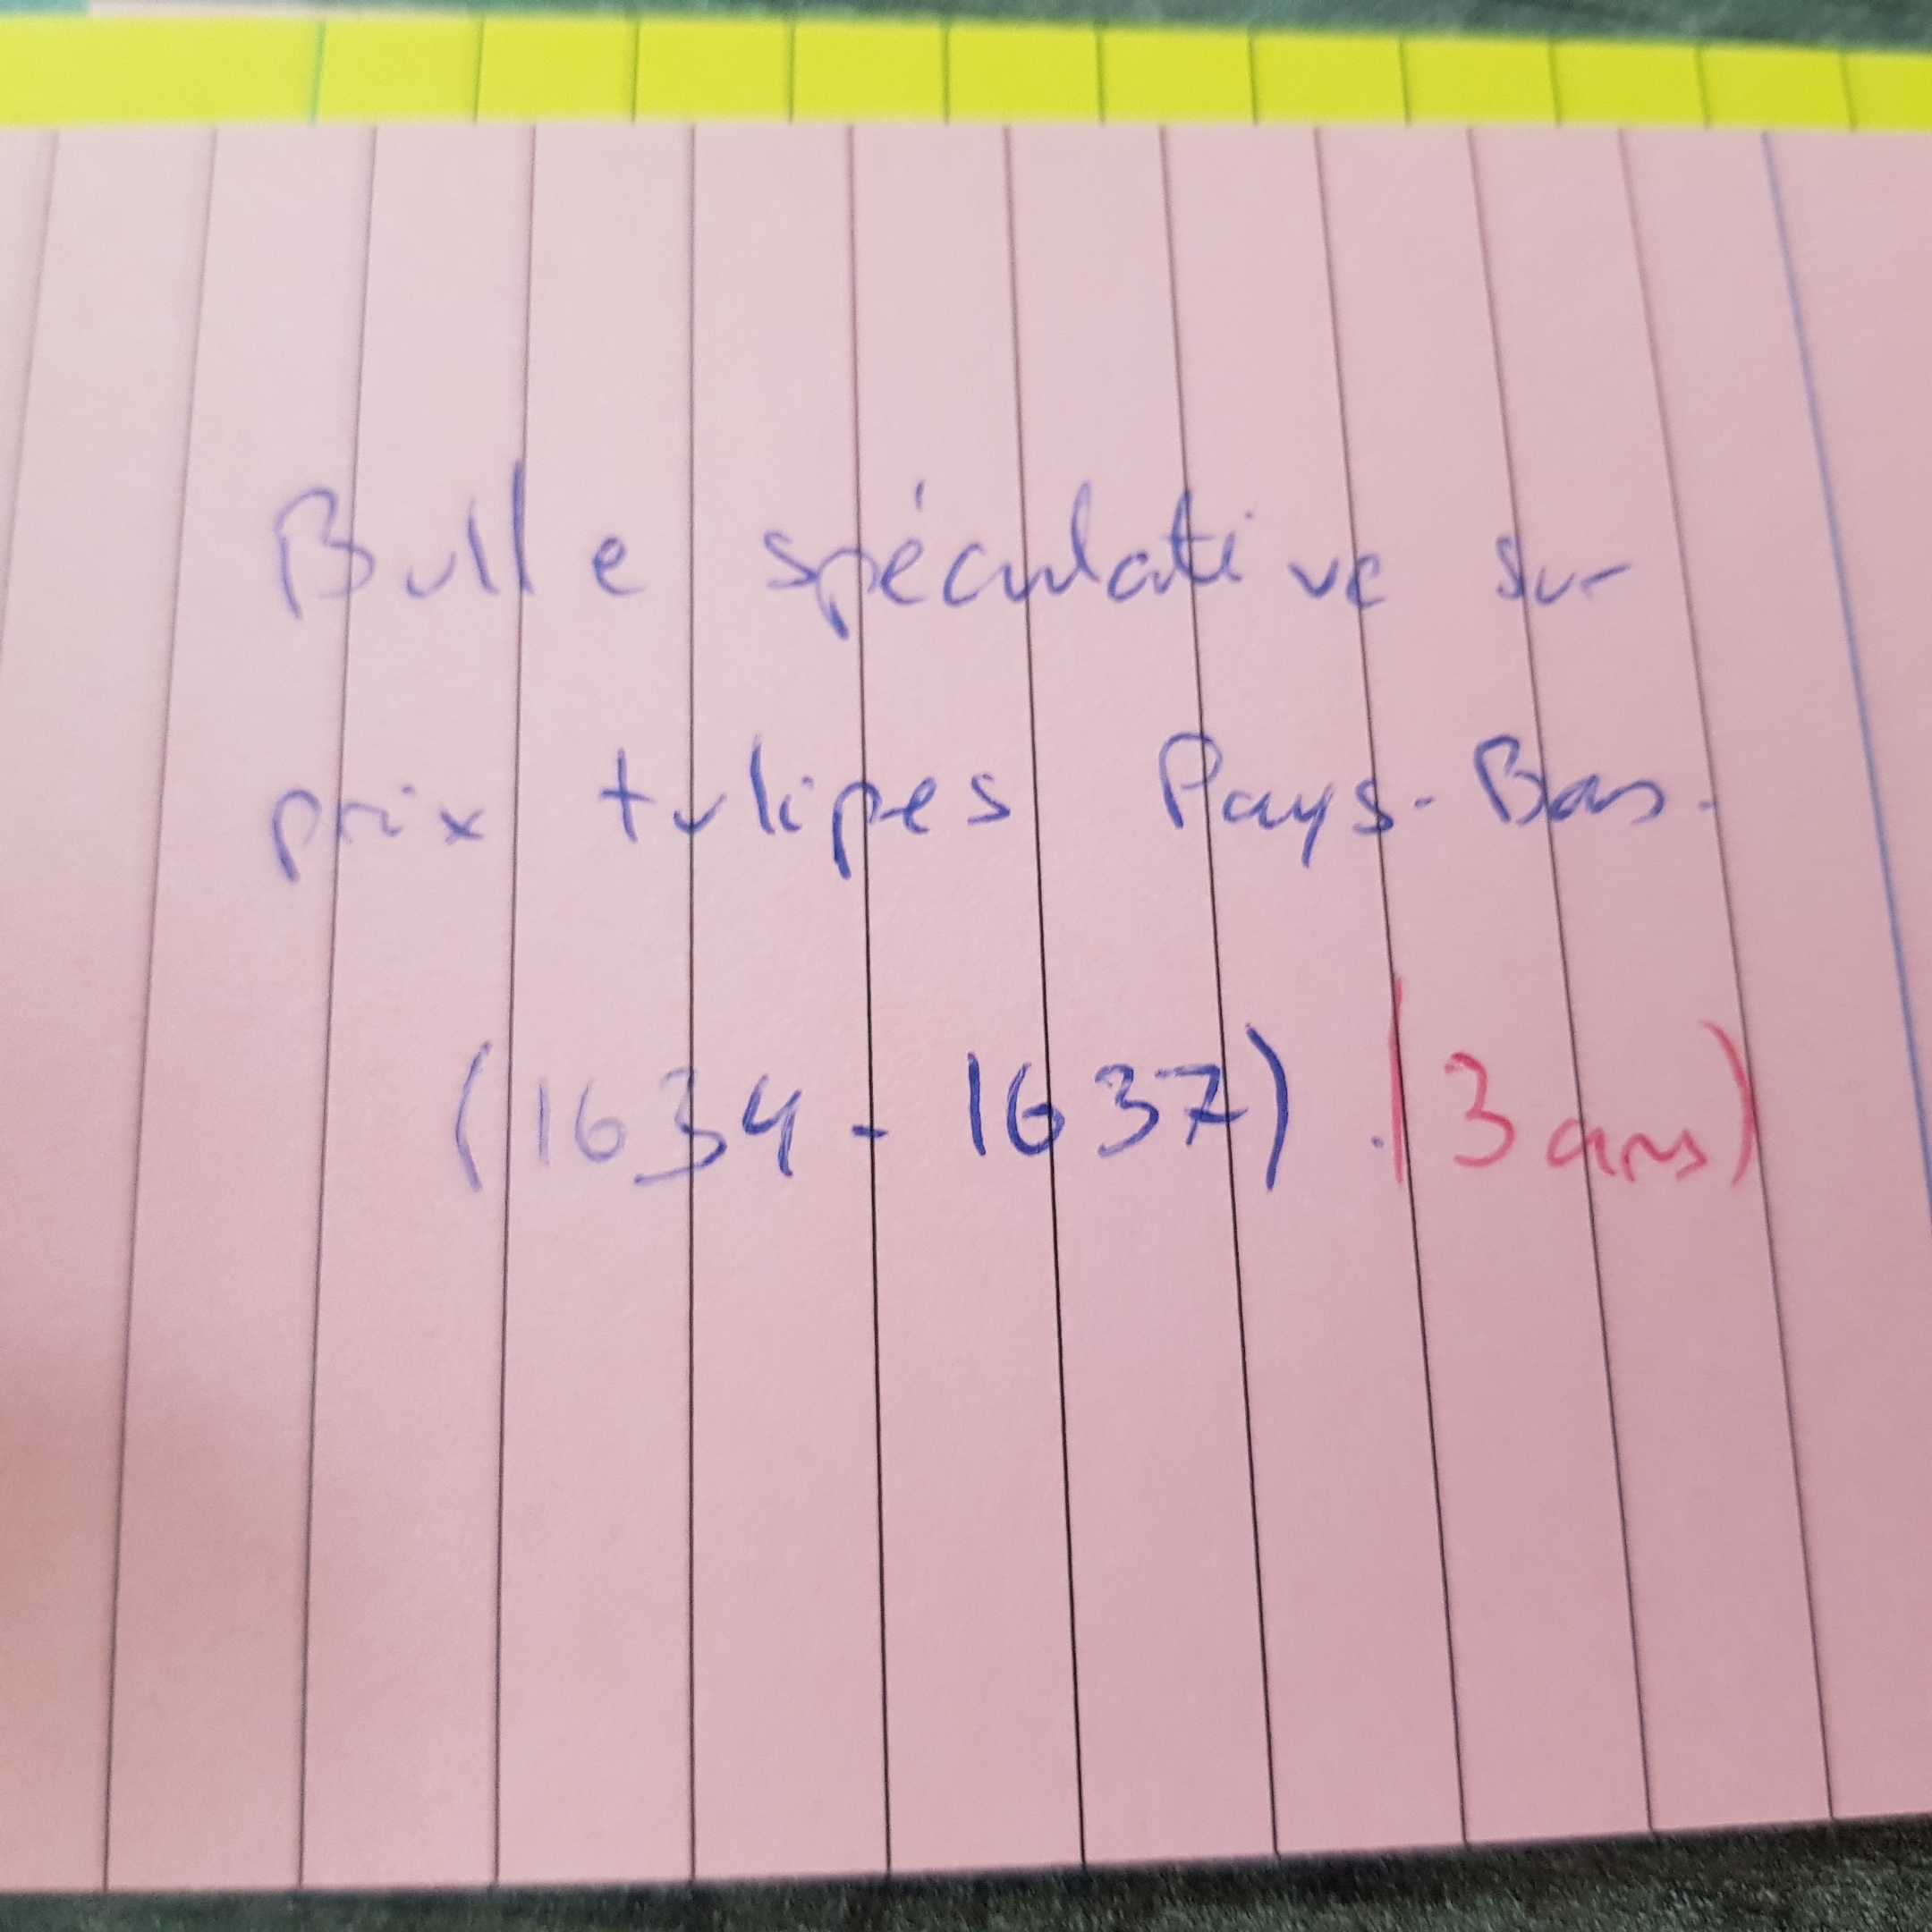 Bulle spéculative sur
prix tulipes Pays-Bas.
(1634 - 1637). (3 ans)